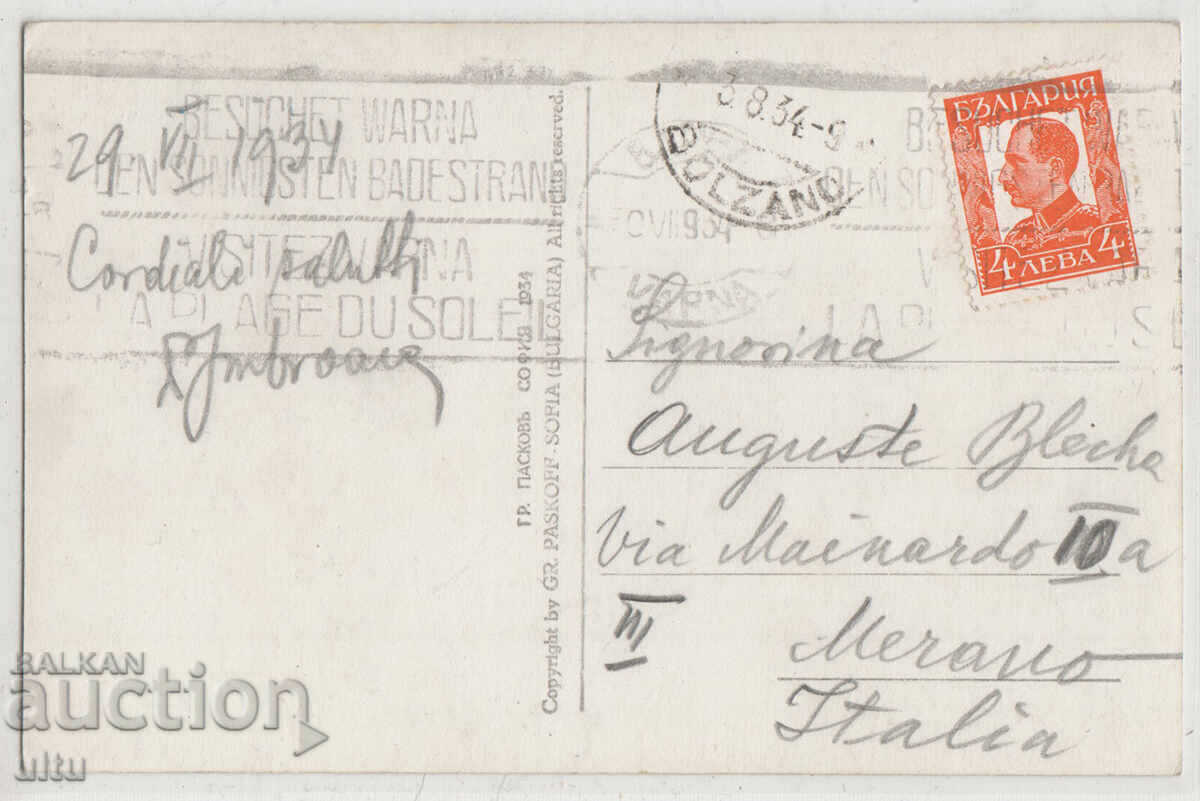 BESUCHET WARNA
DEN SONNIGSTEN BADESTRAND
VISITEZ VARNA
LA PLAGE DU SOLEIL
29 VII 1934
Cordiali saluti
ГР. ПАСКОВЪ СОФИЯ 1934
Copyright by GR. PASKOFF-SOFIA (BULGARIA) All rights reserved.
3.8.34-9
BOLZANO
БЪЛГАРИЯ
4 ЛЕВА 4
Signorina
Auguste Blecha
Via Mainardo 10 a
III
Merano
Italia
BALKAN
auction
ultu